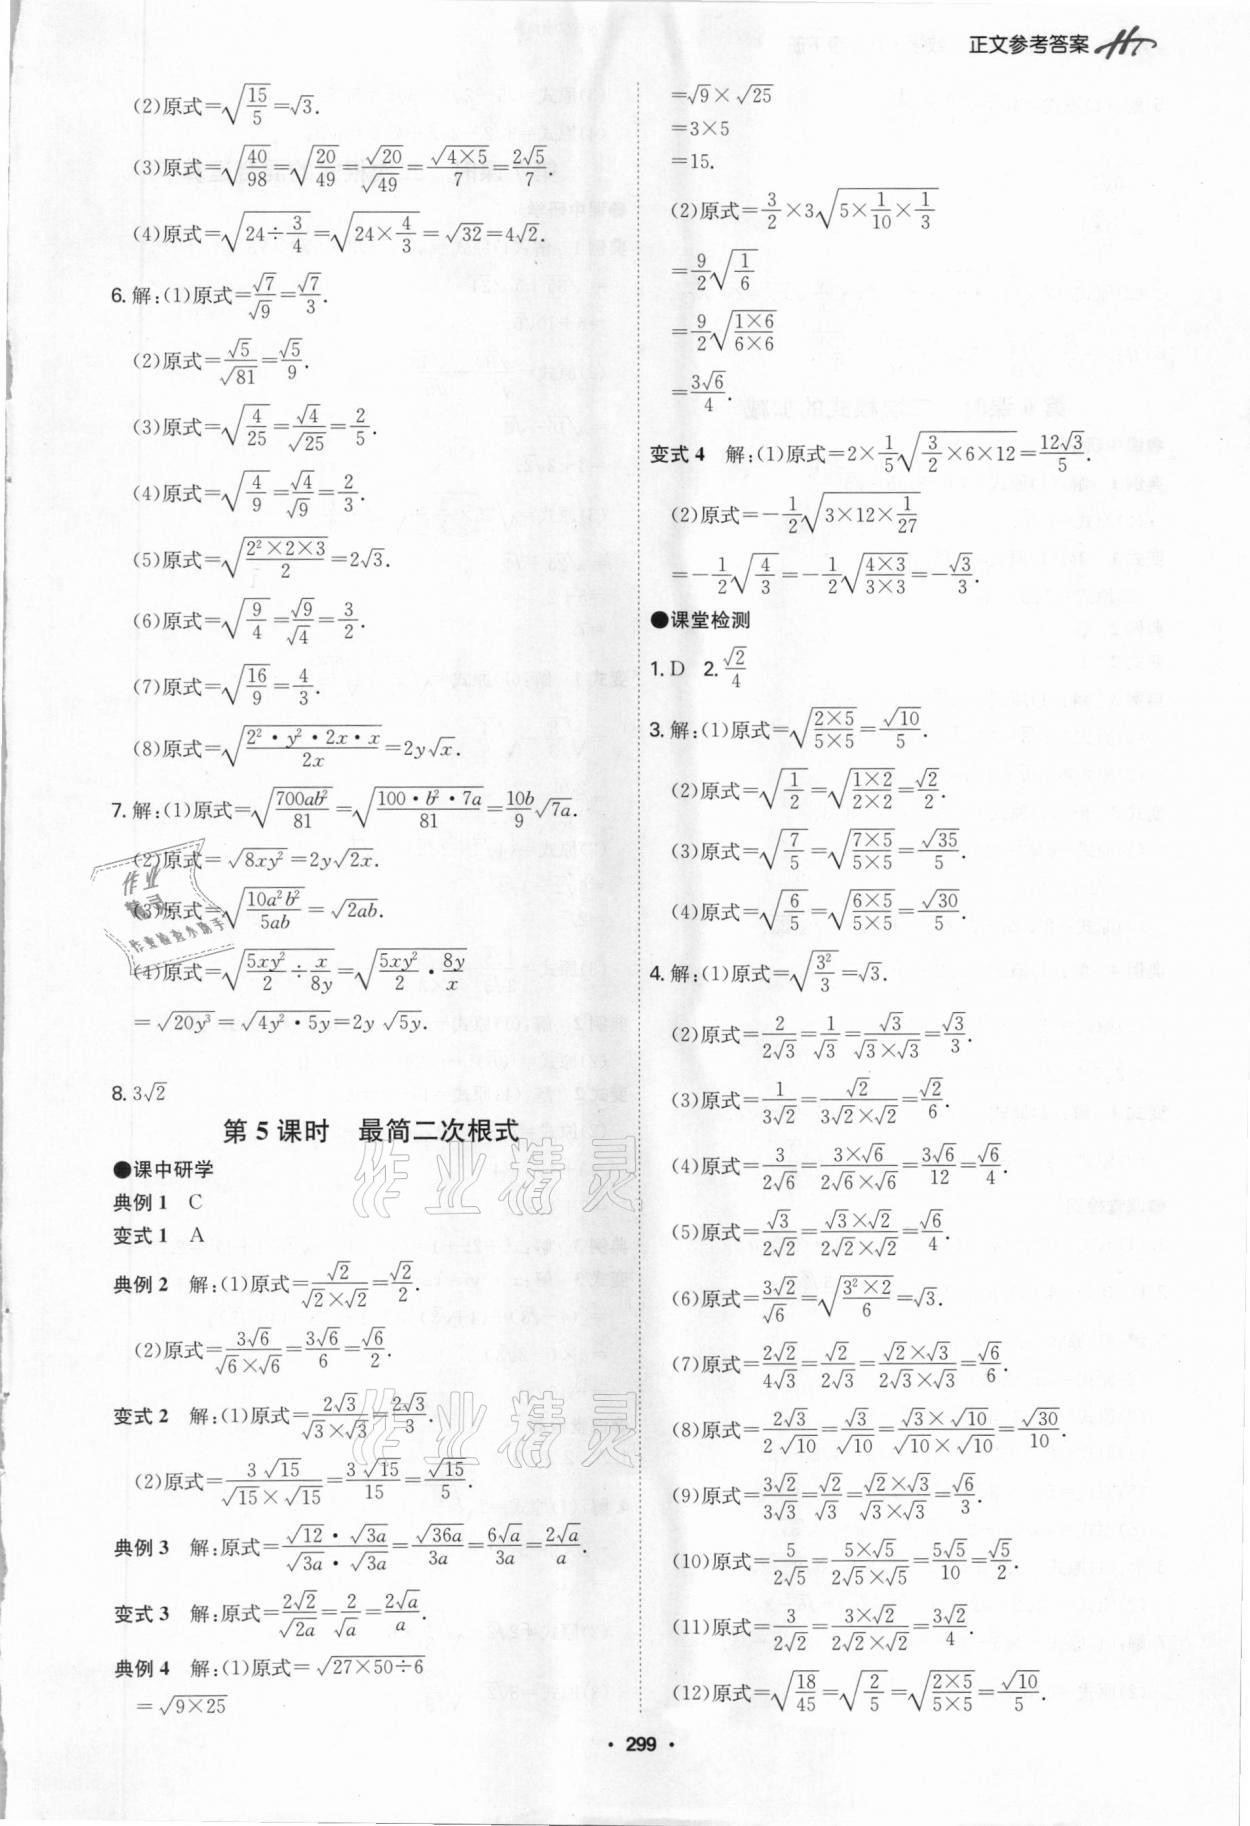 正文参考答案
(2)原式=√(15/5)=√3.
(3)原式=√(40/98)=√(20/49)=√20/√49=√(4×5)/7=2√5/7.
(4)原式=√(24÷3/4)=√(24×4/3)=√32=4√2.
6.解:(1)原式=√7/√9=√7/3.
(2)原式=√5/√81=√5/9.
(3)原式=√(4/25)=√4/√25=2/5.
(4)原式=√(4/9)=√4/√9=2/3.
(5)原式=√((2²×2×3)/2)=2√3.
(6)原式=√(9/4)=√9/√4=3/2.
(7)原式=√(16/9)=4/3.
(8)原式=√((2²·y²·2x·x)/2x)=2y√x.
7.解:(1)原式=√(700ab²/81)=√((100·b²·7a)/81)=10b/9√7a.
(2)原式=√(8xy²)=2y√2x.
(3)原式=√(10a²b²/5ab)=√2ab.
(4)原式=√(5xy²/2÷x/8y)=√(5xy²/2·8y/x)
=√(20y³)=√(4y²·5y)=2y√5y.
8. 3√2
第5课时 最简二次根式
●课中研学
典例1 C
变式1 A
典例2 解:(1)原式=√2/(√2×√2)=√2/2.
(2)原式=3√6/(√6×√6)=3√6/6=√6/2.
变式2 解:(1)原式=2√3/(√3×√3)=2√3/3.
(2)原式=3√15/(√15×√15)=3√15/15=√15/5.
典例3 解:原式=(√12·√3a)/(√3a·√3a)=√36a/3a=6√a/3a=2√a/a.
变式3 解:原式=2√2/√2a=2/√a=2√a/a.
典例4 解:(1)原式=√(27×50÷6)
=√(9×25)
=√9×√25
=3×5
=15.
(2)原式=3/2×3√(5×1/10×1/3)
=9/2√(1/6)
=9/2√((1×6)/(6×6))
=3√6/4.
变式4 解:(1)原式=2×1/5√(3/2×6×12)=12√3/5.
(2)原式=-1/2√(3×12×1/27)
=-1/2√(4/3)=-1/2√((4×3)/(3×3))=-√3/3.
●课堂检测
1. D 2. √2/4
3.解:(1)原式=√((2×5)/(5×5))=√10/5.
(2)原式=√(1/2)=√((1×2)/(2×2))=√2/2.
(3)原式=√(7/5)=√((7×5)/(5×5))=√35/5.
(4)原式=√(6/5)=√((6×5)/(5×5))=√30/5.
4.解:(1)原式=√(3²/3)=√3.
(2)原式=2/2√3=1/√3=√3/(√3×√3)=√3/3.
(3)原式=1/3√2=√2/(3√2×√2)=√2/6.
(4)原式=3/2√6=(3×√6)/(2√6×√6)=3√6/12=√6/4.
(5)原式=√3/2√2=(√3×√2)/(2√2×√2)=√6/4.
(6)原式=3√2/√6=√((3²×2)/6)=√3.
(7)原式=2√2/4√3=√2/2√3=(√2×√3)/(2√3×√3)=√6/6.
(8)原式=2√3/2√10=√3/√10=(√3×√10)/(√10×√10)=√30/10.
(9)原式=3√2/3√3=√2/√3=(√2×√3)/(√3×√3)=√6/3.
(10)原式=5/2√5=(5×√5)/(2√5×√5)=5√5/10=√5/2.
(11)原式=3/2√2=(3×√2)/(2√2×√2)=3√2/4.
(12)原式=√(18/45)=√(2/5)=√((2×5)/(5×5))=√10/5.
·299·
作业精灵
作业精灵
作业
精灵
作业检查小助手